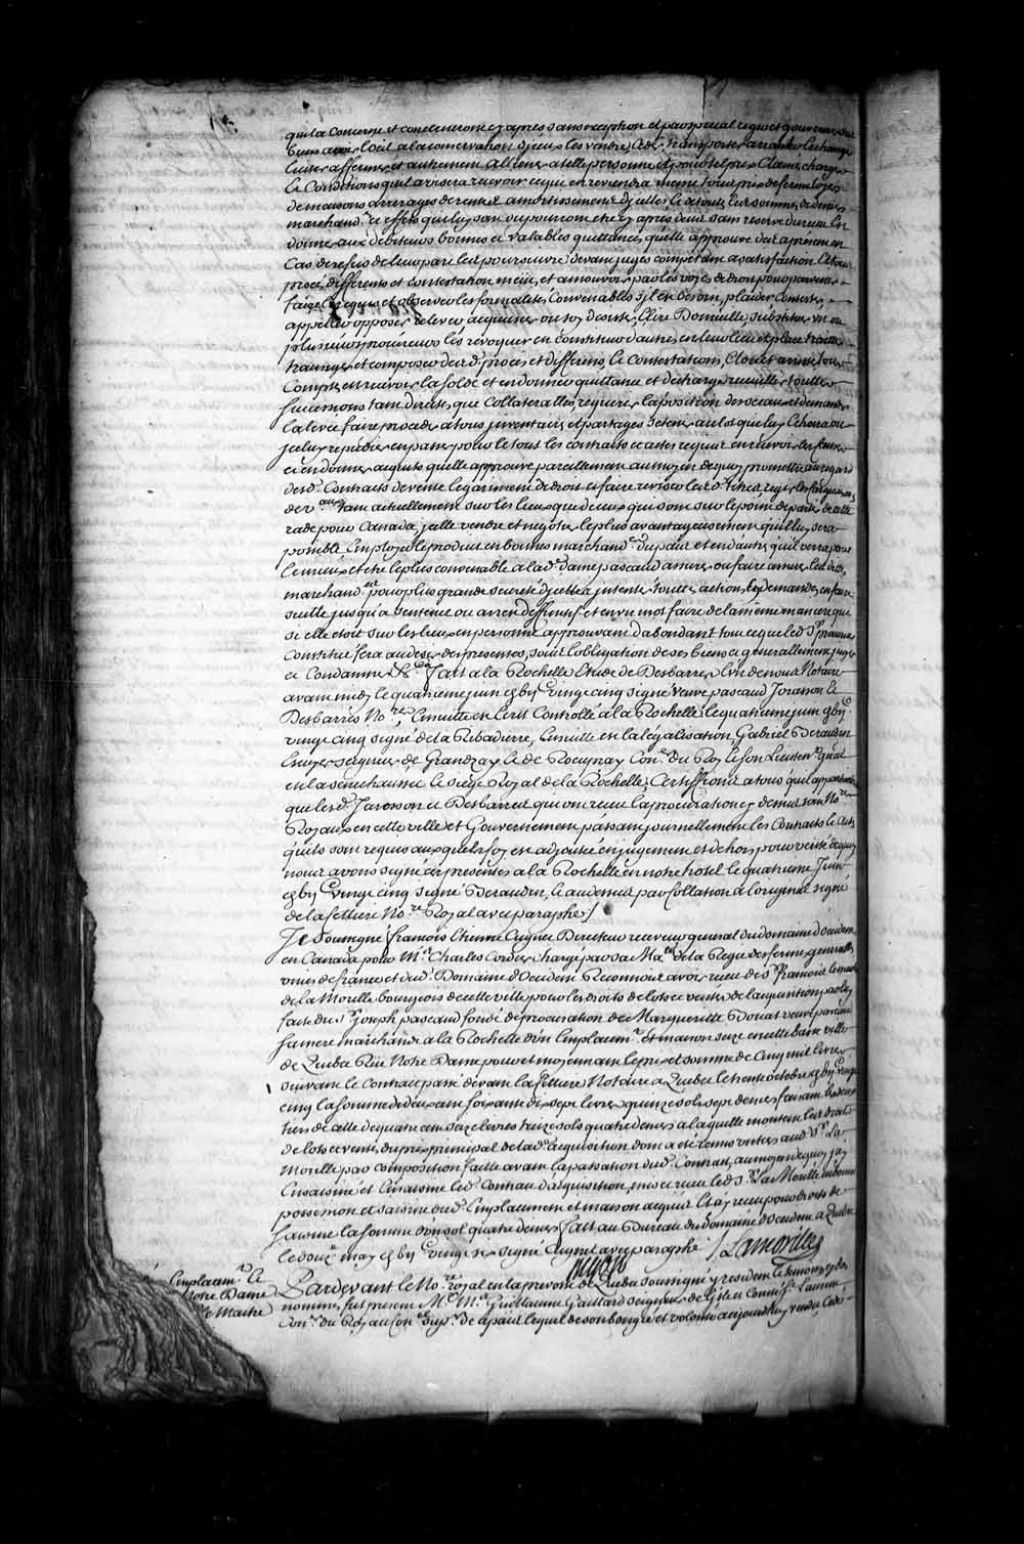 qui la concerne et concerneront cy apres sans exception et par special regir et gouverner ses
biens avoir l'oeil a la conservation d'jceux les vendre ceder transporter arranter Echanger
laisser affermer et autrement alliener a telle personne et pour tel prix Clauses charges
Et Conditions qu'il avisera recevoir ce qui en reviendra meme tous prix de fermes loyers
de maisons arrerages de rentes amortissement d'jcelles et a toutes les sommes de deniers
marchand.ses et effets qui luy sont ou pourront estre cy apres deus sans reserve du receu En
donner aux debiteurs bonnes et valables quittances, qu'elle approuve des a present en
Cas de refus de leur part les poursuivre devant juges competants a satisfaction Et tous
procez, differents et contestation meus, et a mouvoir par les voyes de droit pour y parvenir
faire les requis et observer les formalités Convenables s'jl en est besoin, plaider Contester
appeller opposer relever acquiescer ou s'en desister, Elire Domicille, substituer un ou
plusieurs procureurs les revoquer en constituer d'autres en leur lieu et place traitter
transiger et composer desd. procés et differents, Et Contestations, Clore et arrester tous
Comptes, en recevoir la solde et en donner quittance et decharge recueillir toutes
successions tant directes que Collateralles, requerir l'aposition de sceaux et demander
la levée faire proceder a tous jnventaires et partages s'en tenir au lot qui luy Echoira ou
jceluy repudier en passer pour le tout les contrats et actes requis en recevoir les sommes
et en donner acquits qu'elle approuve pareillement au moyen de quoy promettre au regard
desd. Contrats de vente la garantie de droit et faire revisser led. Tiches, regir les Cargaisons
de v.aux tant actuellement sur les lieux que de ceux qui sont sur le point de partir de cette
rade pour Canada, jcelle vendre et negotier le plus avantageusement qu'il luy sera
possible Employer le produit en bonnes marchand.ses du païs et en d'autres qu'il verra pour
le mieux et etre le plus convenable a lad.e dame pascaud assurer ou faire assurer lesd. dtes
marchand.ses pour plus grande seureté d'jcelles jntenter toutes actions, les demandes en faire
suitte jusqu'a sentence ou arrest deffinitif et en un mot faire de la meme maniere que
si elle etoit sur les lieux en personne approuvant d'abondant tout ce que led. S.r procureur
Constitué fera au desir des presentes, sous l'obligation de ses biens et generallement juger
et Condamner &.ca fait a la Rochelle Etude de Desbarres l'un de nous Notaires
avant midy le quatrieme juin gbij.c vingt cinq signé veuve pascaud Jarosson Et
Desbarres No.re, Ensuitte est Ecrit Controllé a la Rochelle le quatrieme juin gbij.c
vingt cinq signé de la Ribadierre, Ensuitte est la legalisation, Gabriel Beraudin
Ecuyer seigneur de Grandzay Et de Rocupnay Con.er du Roy Et son Lieuten.t g.nal
en la senechaussée et siege Royal de la Rochelle, Certiffions a tous qu'il appartiendra
que lesd. Jarosson et Desbarres qui ont receu la procuration cy dessus sont No.res
Royaux en cette ville et Gouvernement passant journellement les Contrats Et actes
qu'ils sont requis aux quels foy est adjoutée en jugement et dehors pour verité de quoy
nous avons signé ces presentes a la Rochelle en notre hotel le quatrieme Juin
gbij.c vingt cinq signé Beraudin, Et au dessus par Collation a l'original signé
de la fettiere No.re Royal avec paraphe /
Je Soussigné françois Etienne Cugnet Directeur receveur general du domaine d'occident
en Canada pour M.e Charles Cordier chargé par sa Ma.té de la Regie des fermes generalles
unies de france et dud. Domaine d'Occident Reconnois avoir receu de S.r françois lemaitre
de la Morille bourgeois de cette ville pour les droits de lots et ventes de l'acquisition par luy
faite du S.r Joseph pascaud fondé de procuration de Margueritte Bouat veuve pascaud
sa mere marchande a la Rochelle d'un Emplacem.t Et maison size en cette basse ville
de Quebec Rue Notre Dame pour et moyennant le prix et somme de Cinq mil livres
suivant le contrat passé devant la fettiere Notaire a Quebec le trente octobre gbij.c vingt
cinq la somme de deux cent soixante dix sept livres quinze sols sept deniers faisant les deux
tiers de celle de quatre cent seize livres treize sols quatre deniers a laquelle montent lesd. droits
de lots et ventes du prix principal de lad. acquisition dont a eté le tiers remis aud. S.r La
Morille par composition faitte avant la passation dud. Contrat, au moyen de quoy j'ay
Ensaisiné et Ensaisine led. Contrat d'acquisition, mis et receu led. S.r La Morille en bonne
possession et saisine dud. Emplacement et maison acquis Et ay receu pour droits de
saisine la somme d'un sol quatre deniers fait au Bureau du domaine d'Occident a Quebec
le douz.e may gbij.c vingt six signé Cugnet avec paraphe / Lamorille
Emplacem.t Et
Notre Dame
Pardevant le No.re royal en la prevosté de Quebec soussigné y residant Et temoins cy bas
nommés, fut present M.e M.e Guillaume Gaillard seigneur de l'isle et Comté S.t Laurent
Con.er du Roy au Con.el sup.r de ce païs lequel de son bon gré et volonté a cejourd'huy vendu cedé